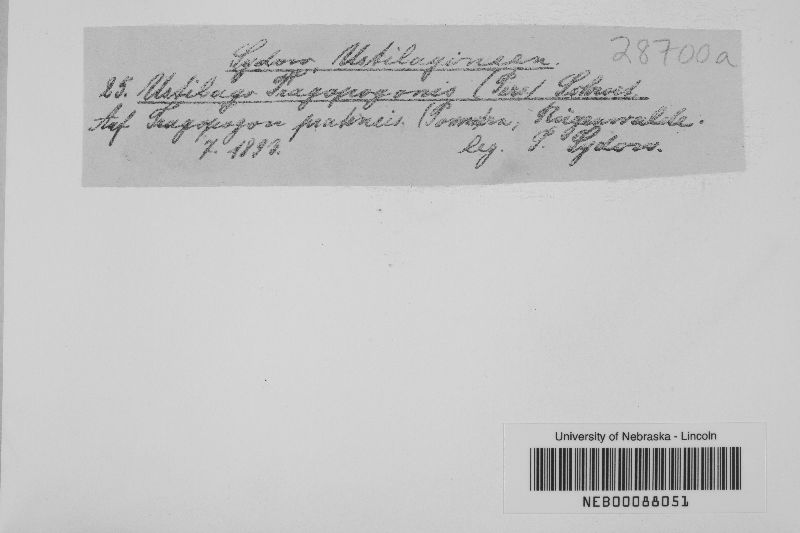 Sydow, Ustilagineen. 28700a
25. Ustilago Tragopogonis (Pers) Schroet.
Auf Tragopogon pratensis. Pommern, Rügenwalde.
7. 1893. leg. P. Sydow.
University of Nebraska - Lincoln
NEB00088051